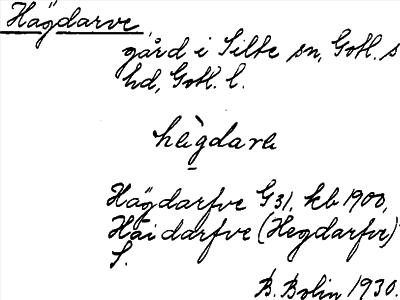 Hägdarve,
gård i Silte sn, Gotl. s
hd, Gotl. l.
hägdarve
Hägdarfve G31, kb 1900,
Häidarfve (Hegdarfve)
S.
B. Bolin 1930.